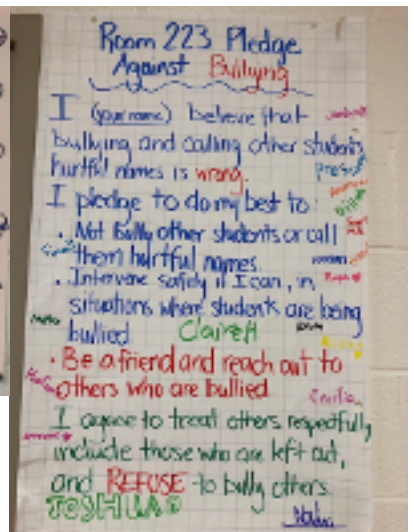 Room 223 Pledge
Against Bullying
I (your name) believe that
bullying and calling other students
hurtful names is wrong.
I pledge to do my best to:
• Not Bully other students or call
them hurtful names.
• Intervene safely if I can, in
situations where students are being
bullied
Claire H
• Be a friend and reach out to
others who are bullied
Cecilia
I agree to treat others respectfully,
include those who are left out,
and REFUSE to bully others.
JOSHUA